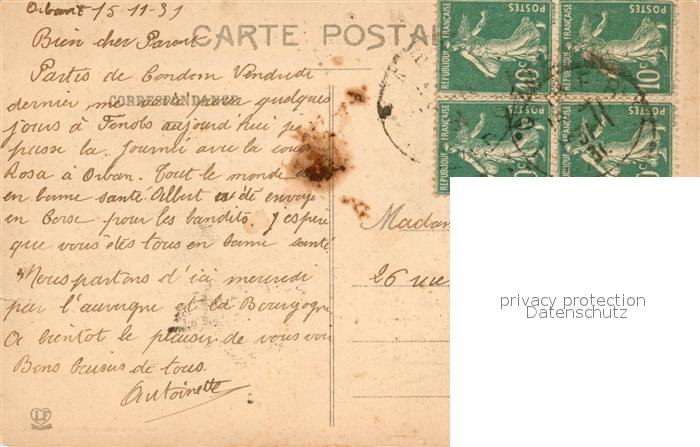 Orban 15-11-31
Bien cher Parent
CARTE POSTAL
Partis de Condom Vendredi
CORRESPONDANCE
dernier quelques
jours à Fenols aujourd'hui je
passe la journée avec la cousine
Rosa à Orban. Tout le monde
en bonne santé. Albert a été envoyé
en Corse pour les bandits. J'espère
que vous êtes tous en bonne santé
Nous partons d'ici mercredi
par l'auvergne et la Bourgogne
A bientot le plaisir de vous voir
Bons baisers de tous.
Antoinette
RÉPUBLIQUE FRANÇAISE POSTES 10c
RÉPUBLIQUE FRANÇAISE POSTES 10c
RÉPUBLIQUE FRANÇAISE POSTES
RÉPUBLIQUE FRANÇAISE POSTES
Madam
26 rue
privacy protection
Datenschutz